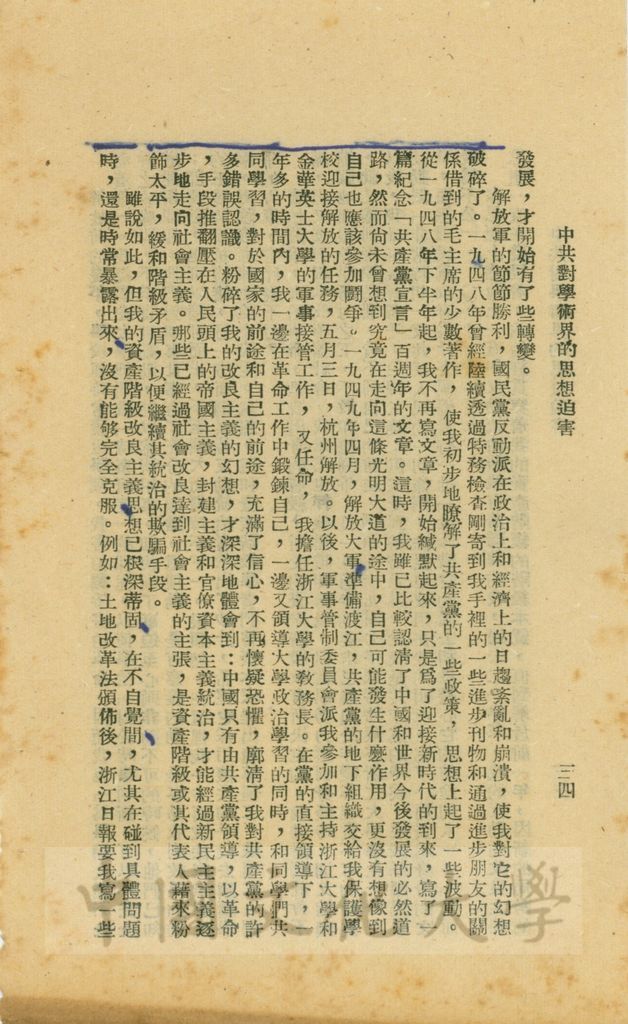 中共對學術界的思想迫害
三四
發展，才開始有了些轉變。
解放軍的節節勝利，國民黨反動派在政治上和經濟上的日趨紊亂和崩潰，使我對它的幻想
破碎了。一九四八年曾經陸續透過特務檢查剛寄到我手裡的一些進步刊物和通過進步朋友的關
係借到的毛主席的少數著作，使我初步地瞭解了共產黨的一些政策，思想上起了一些波動。
從一九四八年下半年起，我不再寫文章，開始緘默起來，只是爲了迎接新時代的到來，寫了一
篇紀念「共產黨宣言」百週年的文章。這時，我雖已比較認清了中國和世界今後發展的必然道
路，然而尚未曾想到究竟在走向這條光明大道的途中，自己可能發生什麼作用，更沒有想像到
自己也應該參加鬪爭。一九四九年四月，解放大軍準備渡江，共產黨的地下組織交給我保護學
校迎接解放的任務，五月三日，杭州解放。以後，軍事管制委員會派我參加和主持浙江大學和
金華英士大學的軍事接管工作，又任命，我擔任浙江大學的敎務長。在黨的直接領導下，一
年多的時間內，我一邊在革命工作中鍛鍊自己，一邊又領導大學政治學習的同時，和同學們共
同學習，對於國家的前途和自己的前途，充滿了信心，不再懷疑恐懼，廓清了我對共產黨的許
多錯誤認識。粉碎了我的改良主義的幻想，才深深地體會到：中國只有由共產黨領導，以革命
，手段推翻壓在人民頭上的帝國主義，封建主義和官僚資本主義統治，才能經過新民主主義逐
步地走向社會主義。那些已經過社會改良達到社會主義的主張，是資產階級或其代表人藉來粉
飾太平，緩和階級矛盾，以便繼續其統治的欺騙手段。
雖說如此，但我的資產階級改良主義思想已根深蒂固，在不自覺間，尤其在碰到具體問題
時，還是時常暴露出來，沒有能够完全克服。例如：土地改革法頒佈後，浙江日報要我寫一些